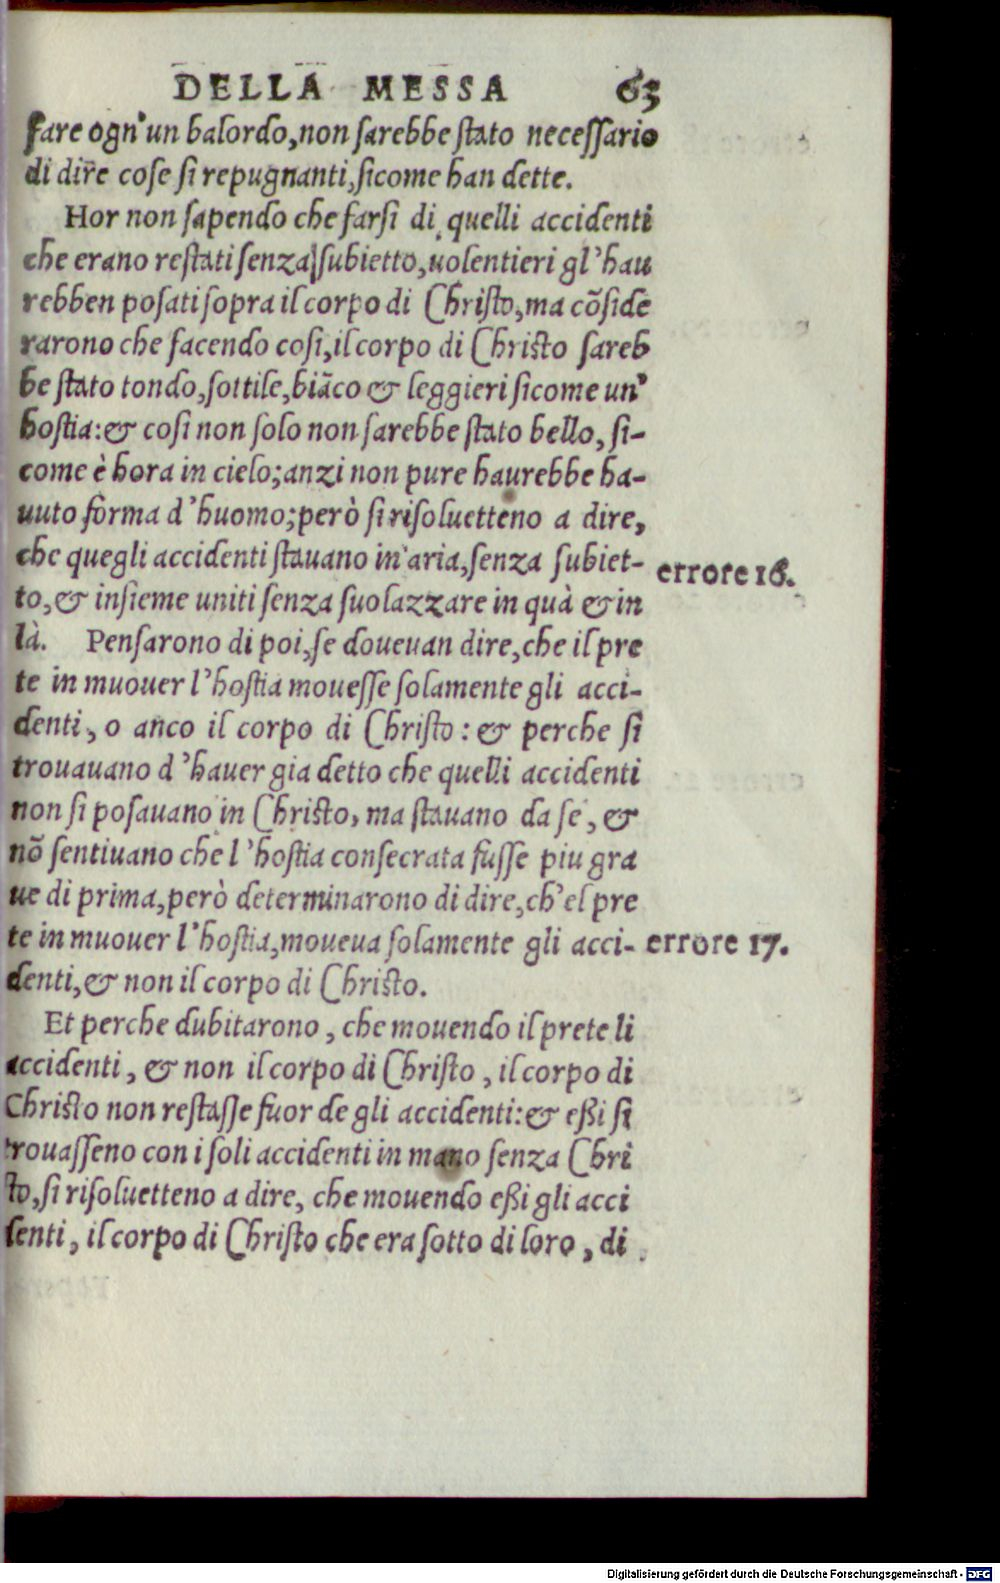 DELLA MESSA 63
fare ogn'un balordo, non sarebbe stato necessario
di dire cose si repugnanti, sicome han dette.
Hor non sapendo che farsi di quelli accidenti
che erano restati senza subietto, uolentieri gl'hau
rebben posati sopra il corpo di Christo, ma cõside
rarono che facendo cosi, il corpo di Christo sareb
be stato tondo, sottile, biãco & leggieri sicome un'
hostia: & cosi non solo non sarebbe stato bello, si-
come è hora in cielo; anzi non pure haurebbe ha-
uuto forma d'huomo; però si risoluetteno a dire,
che quegli accidenti stauano in aria, senza subiet-
errore 16.
to, & insieme uniti senza suolazzare in quà & in
là. Pensarono di poi, se doueuan dire, che il pre
te in muouer l'hostia mouesse solamente gli acci-
denti, o anco il corpo di Christo: & perche si
trouauano d'hauer gia detto che quelli accidenti
non si posauano in Christo, ma stauano da se, &
nõ sentiuano che l'hostia consecrata fusse piu gra
ue di prima, però determinarono di dire, ch'el pre
te in muouer l'hostia, moueua solamente gli acci-
errore 17.
denti, & non il corpo di Christo.
Et perche dubitarono, che mouendo il prete li
accidenti, & non il corpo di Christo, il corpo di
Christo non restasse fuor de gli accidenti: & eßi si
trouasseno con i soli accidenti in mano senza Chri
sto, si risoluetteno a dire, che mouendo eßi gli acci
denti, il corpo di Christo che era sotto di loro, di
Digitalisierung gefördert durch die Deutsche Forschungsgemeinschaft - DFG